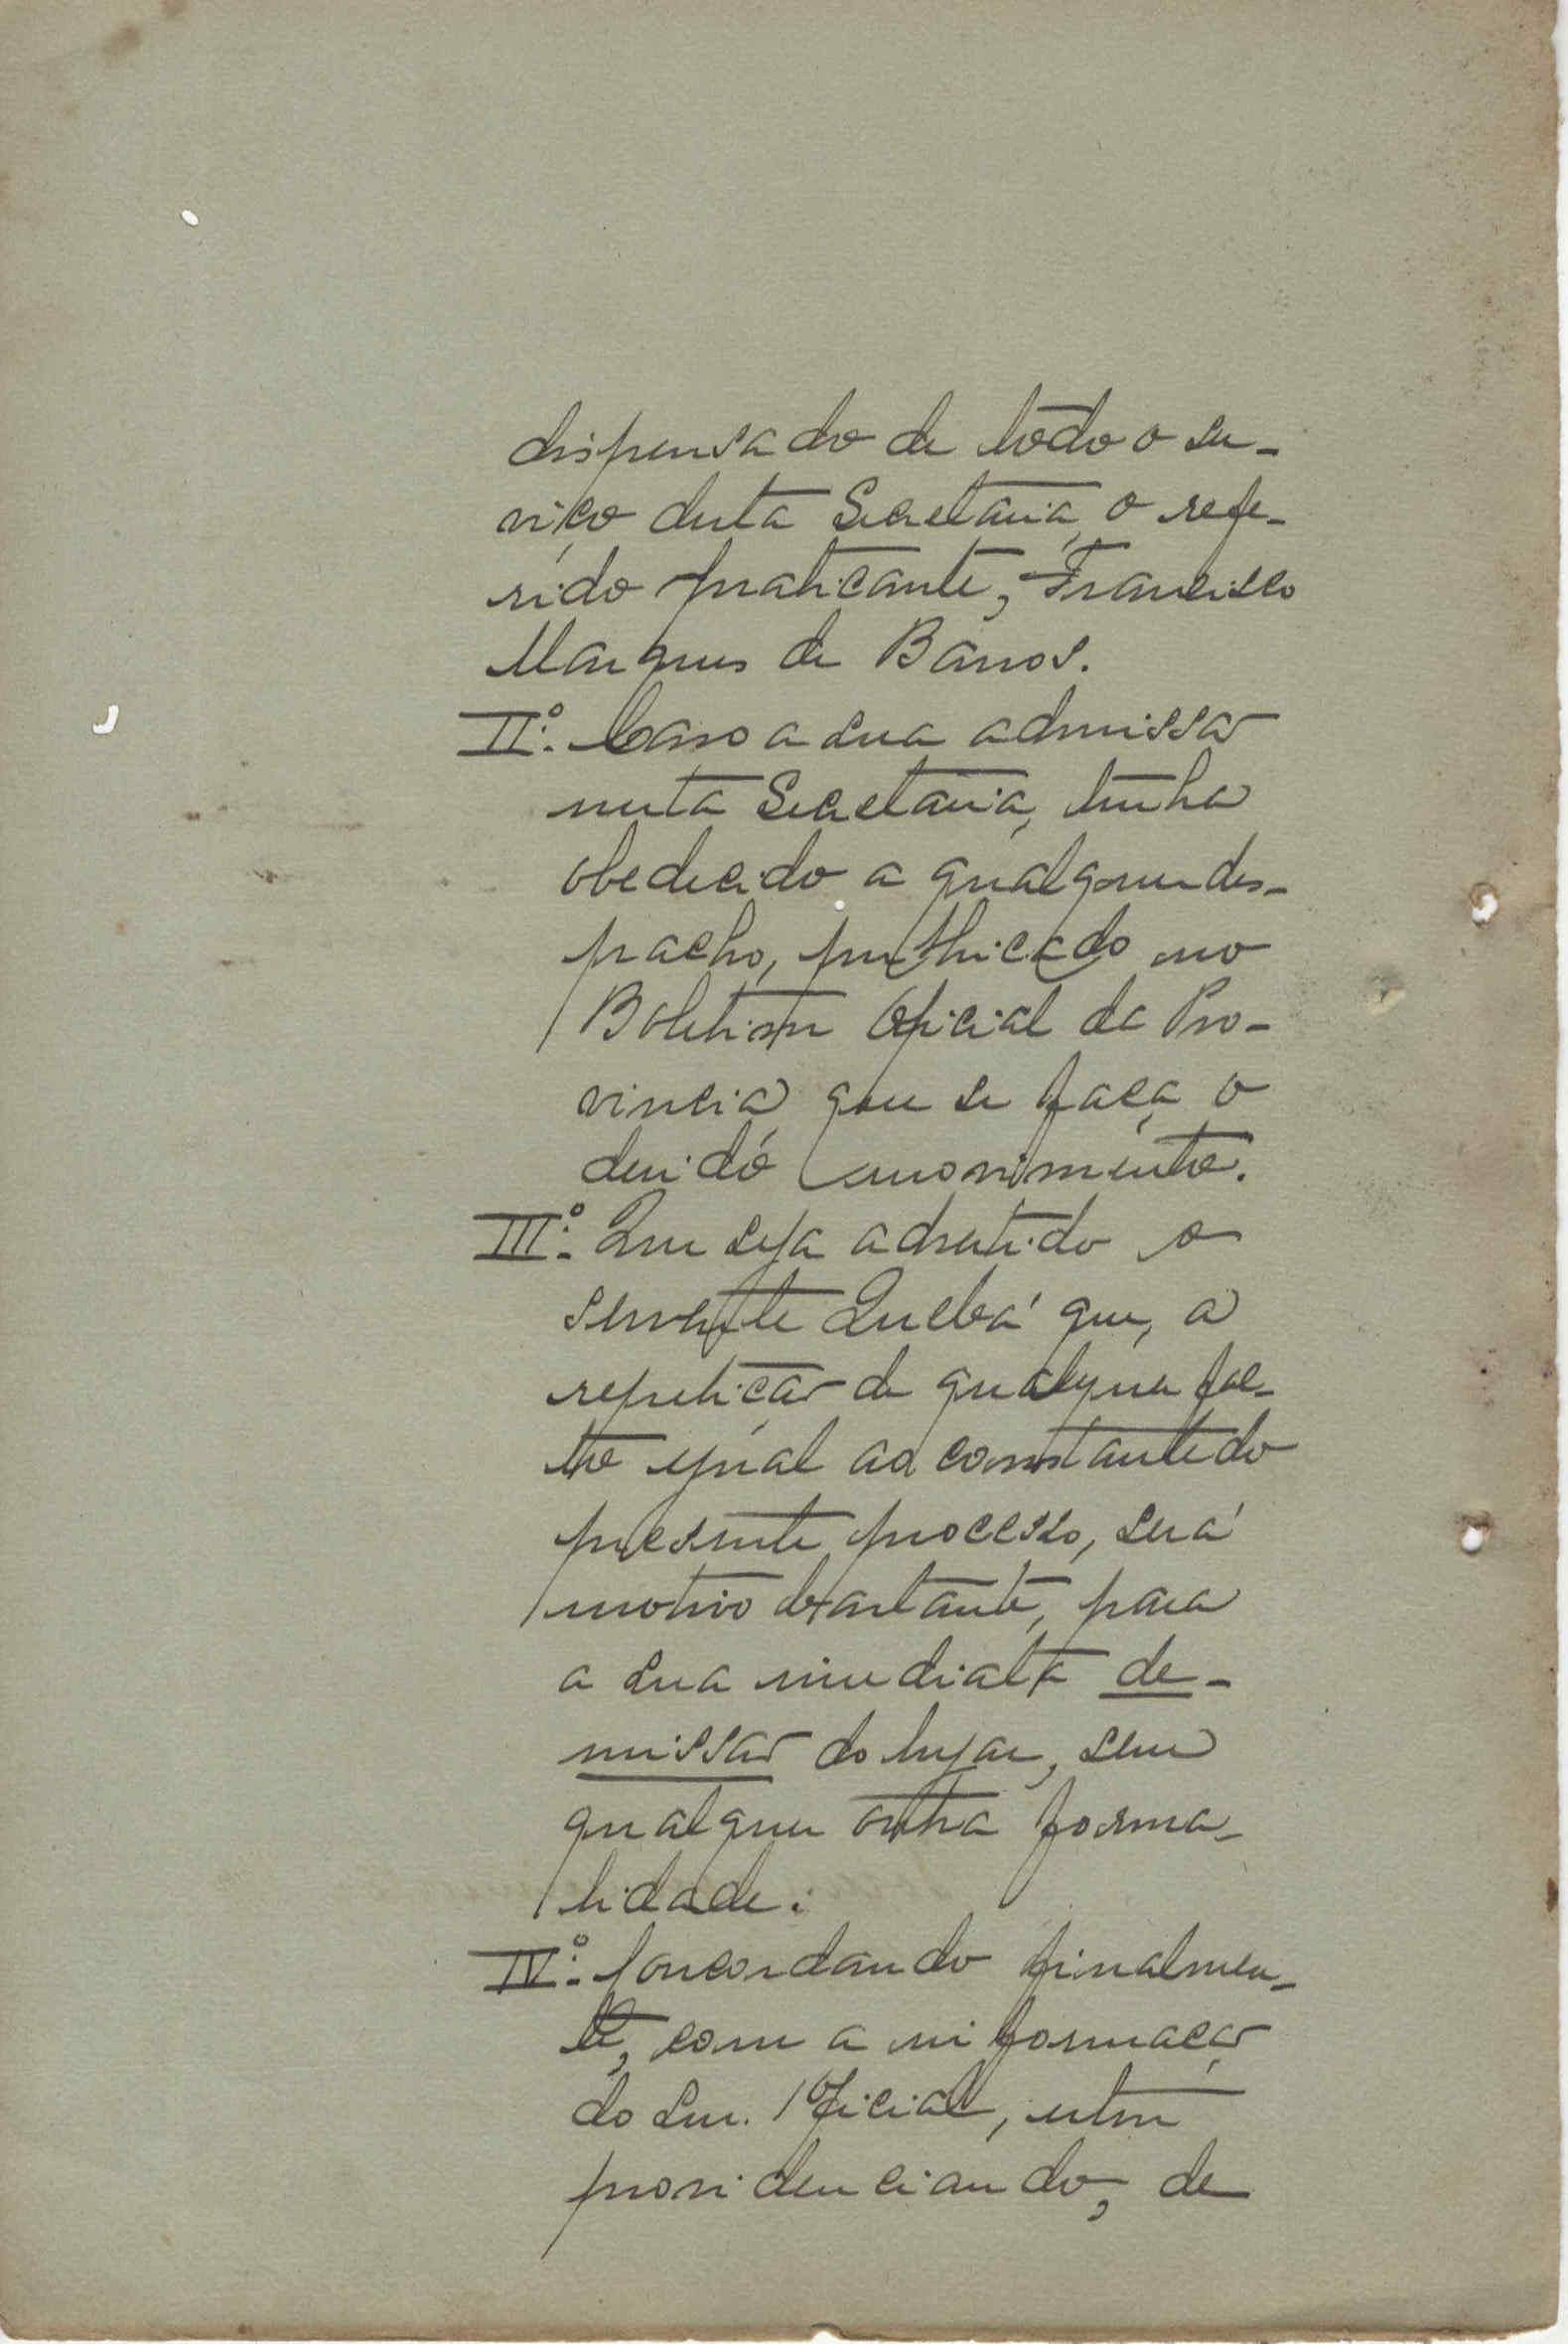 dispensado de todo o ser-
viço desta Secretaria, o refe-
rido praticante, Francisco
Marques de Barros.
IIº. Caso a sua admissão
nesta Secretaria, tenha
obedecido a qualquer des-
pacho, publicado no
Boletim Oficial da Pro-
vincia que se faça o
devido
IIIº. Que seja advertido o
servente Quebá que, a
repetição de qualquer fac-
to igual ao constante do
presente processo, será
motivo bastante, para
a sua imediata de-
missão do lugar, sem
qualquer outra forma-
lidade:
IVº. Concordando finalmen-
te, com a informação
do Snr. 1º oficial, estou
providenciando, de